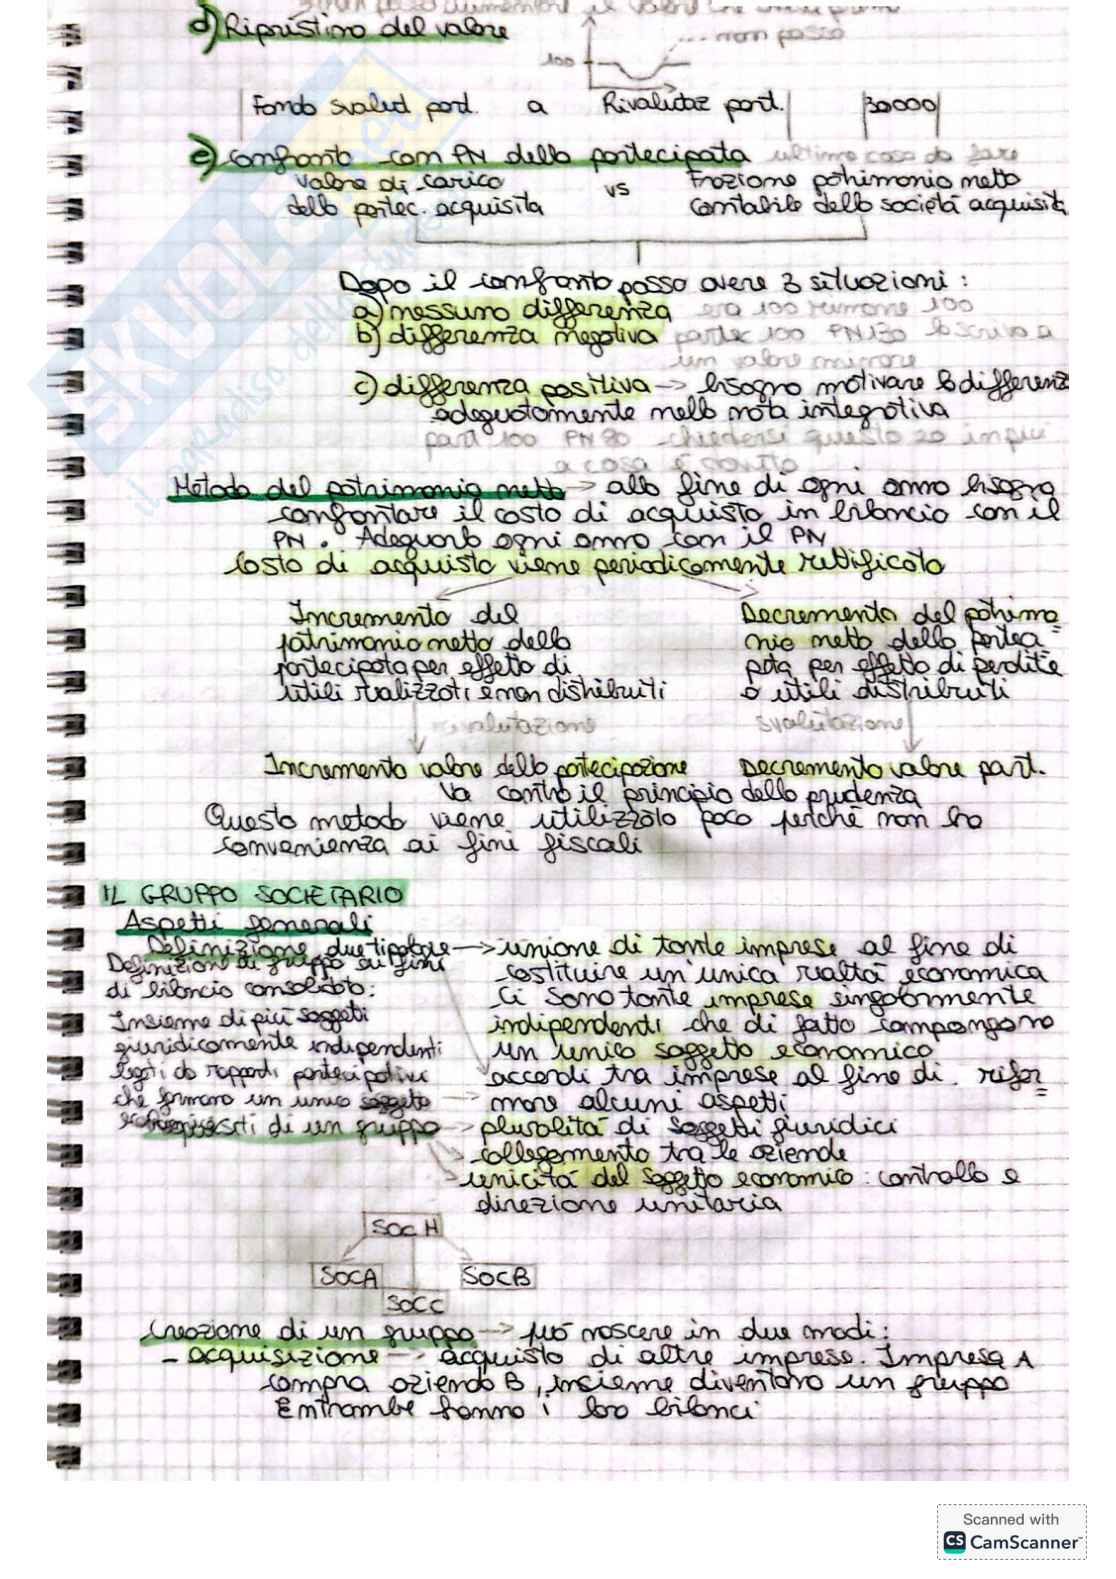 d) Ripristino del valore
non posso
100
Fondo svalut part. a Rivalutaz part. 30000
e) confronto con PN della partecipata ultima cosa da fare
valore di carico vs Frazione patrimonio netto
della partec. acquisita contabile della società acquisita
Dopo il confronto posso avere 3 situazioni:
a) nessuna differenza era 100 rimane 100
b) differenza negativa partec 100 PN130 la scrivo a
un valore minore
c) differenza positiva → bisogna motivare la differenz
adeguatamente nella nota integrativa
part 100 PN 80 chiedersi questo 20 in più
a cosa è dovuto
Metodo del patrimonio netto → alla fine di ogni anno bisogna
confrontare il costo di acquisto in bilancio con il
PN. Adeguarlo ogni anno con il PN
Costo di acquisto viene periodicamente rettificato
Incremento del Decremento del patrimo=
patrimonio netto della nio netto della parteci=
partecipata per effetto di pata per effetto di perdite
utili realizzati e non distribuiti o utili distribuiti
rivalutazione svalutazione
Incremento valore della partecipazione Decremento valore part.
va contro il principio della prudenza
Questo metodo viene utilizzato poco perché non ha
convenienza ai fini fiscali
IL GRUPPO SOCIETARIO
Aspetti generali
Definizione due tipologie → unione di tante imprese al fine di
costituire un'unica realtà economica
Ci sono tante imprese singolarmente
indipendenti che di fatto compongono
un unico soggetto economico
accordi tra imprese al fine di rifor=
mare alcuni aspetti
Definizione di gruppo ai fini
di bilancio consolidato:
Insieme di più soggetti
giuridicamente indipendenti
legati da rapporti partecipativi
che formano un unico soggetto
Requisiti di un gruppo → pluralità di soggetti giuridici
collegamento tra le aziende
unicità del soggetto economico: controllo e
direzione unitaria
SOC H
SOCA SOCB
SOCC
Creazione di un gruppo → può nascere in due modi:
- acquisizione → acquisto di altre imprese. Impresa A
compra azienda B, insieme diventano un gruppo
Entrambe hanno i loro bilanci
SKUOLA.net
Scanned with
CS CamScanner